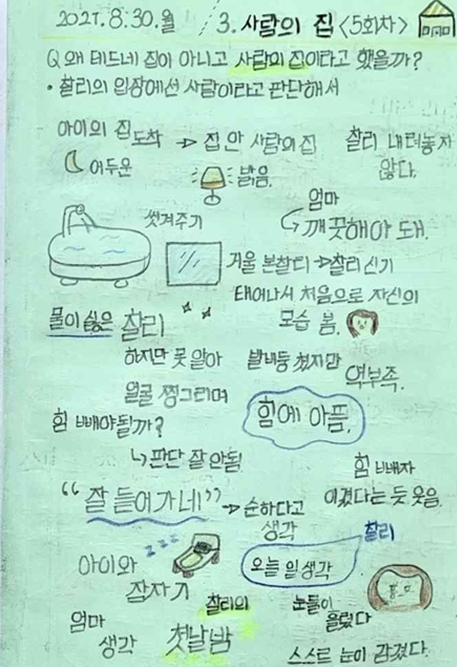 2021.8.30.월 3. 사람의 집 <5회차>
Q 왜 테드네 집이 아니고 사람의 집이라고 했을까?
• 찰리의 입장에선 사람이라고 판단해서
아이의 집 도착 → 집 안 사람의 집
찰리 내려놓자 않다.
어두운
밝음.
엄마
씻겨주기
깨끗해야 돼.
거울 본 찰리 → 찰리 신기
태어나서 처음으로 자신의
모습 봄.
물이 싫은 찰리
하지만 못 알아
발버둥 쳤지만
역부족.
얼굴 찡그리며
힘에 아픔.
힘 빼야 될까?
↳ 판단 잘 안됨
힘 빼자
이겼다는 듯 웃음.
“잘 들어가네” → 순하다고
생각
찰리
아이와
잠자기
zzz
오늘 일 생각
찰리의
첫날밤
엄마
생각
눈들이
풀렸다
스스르 눈이 감겼다.